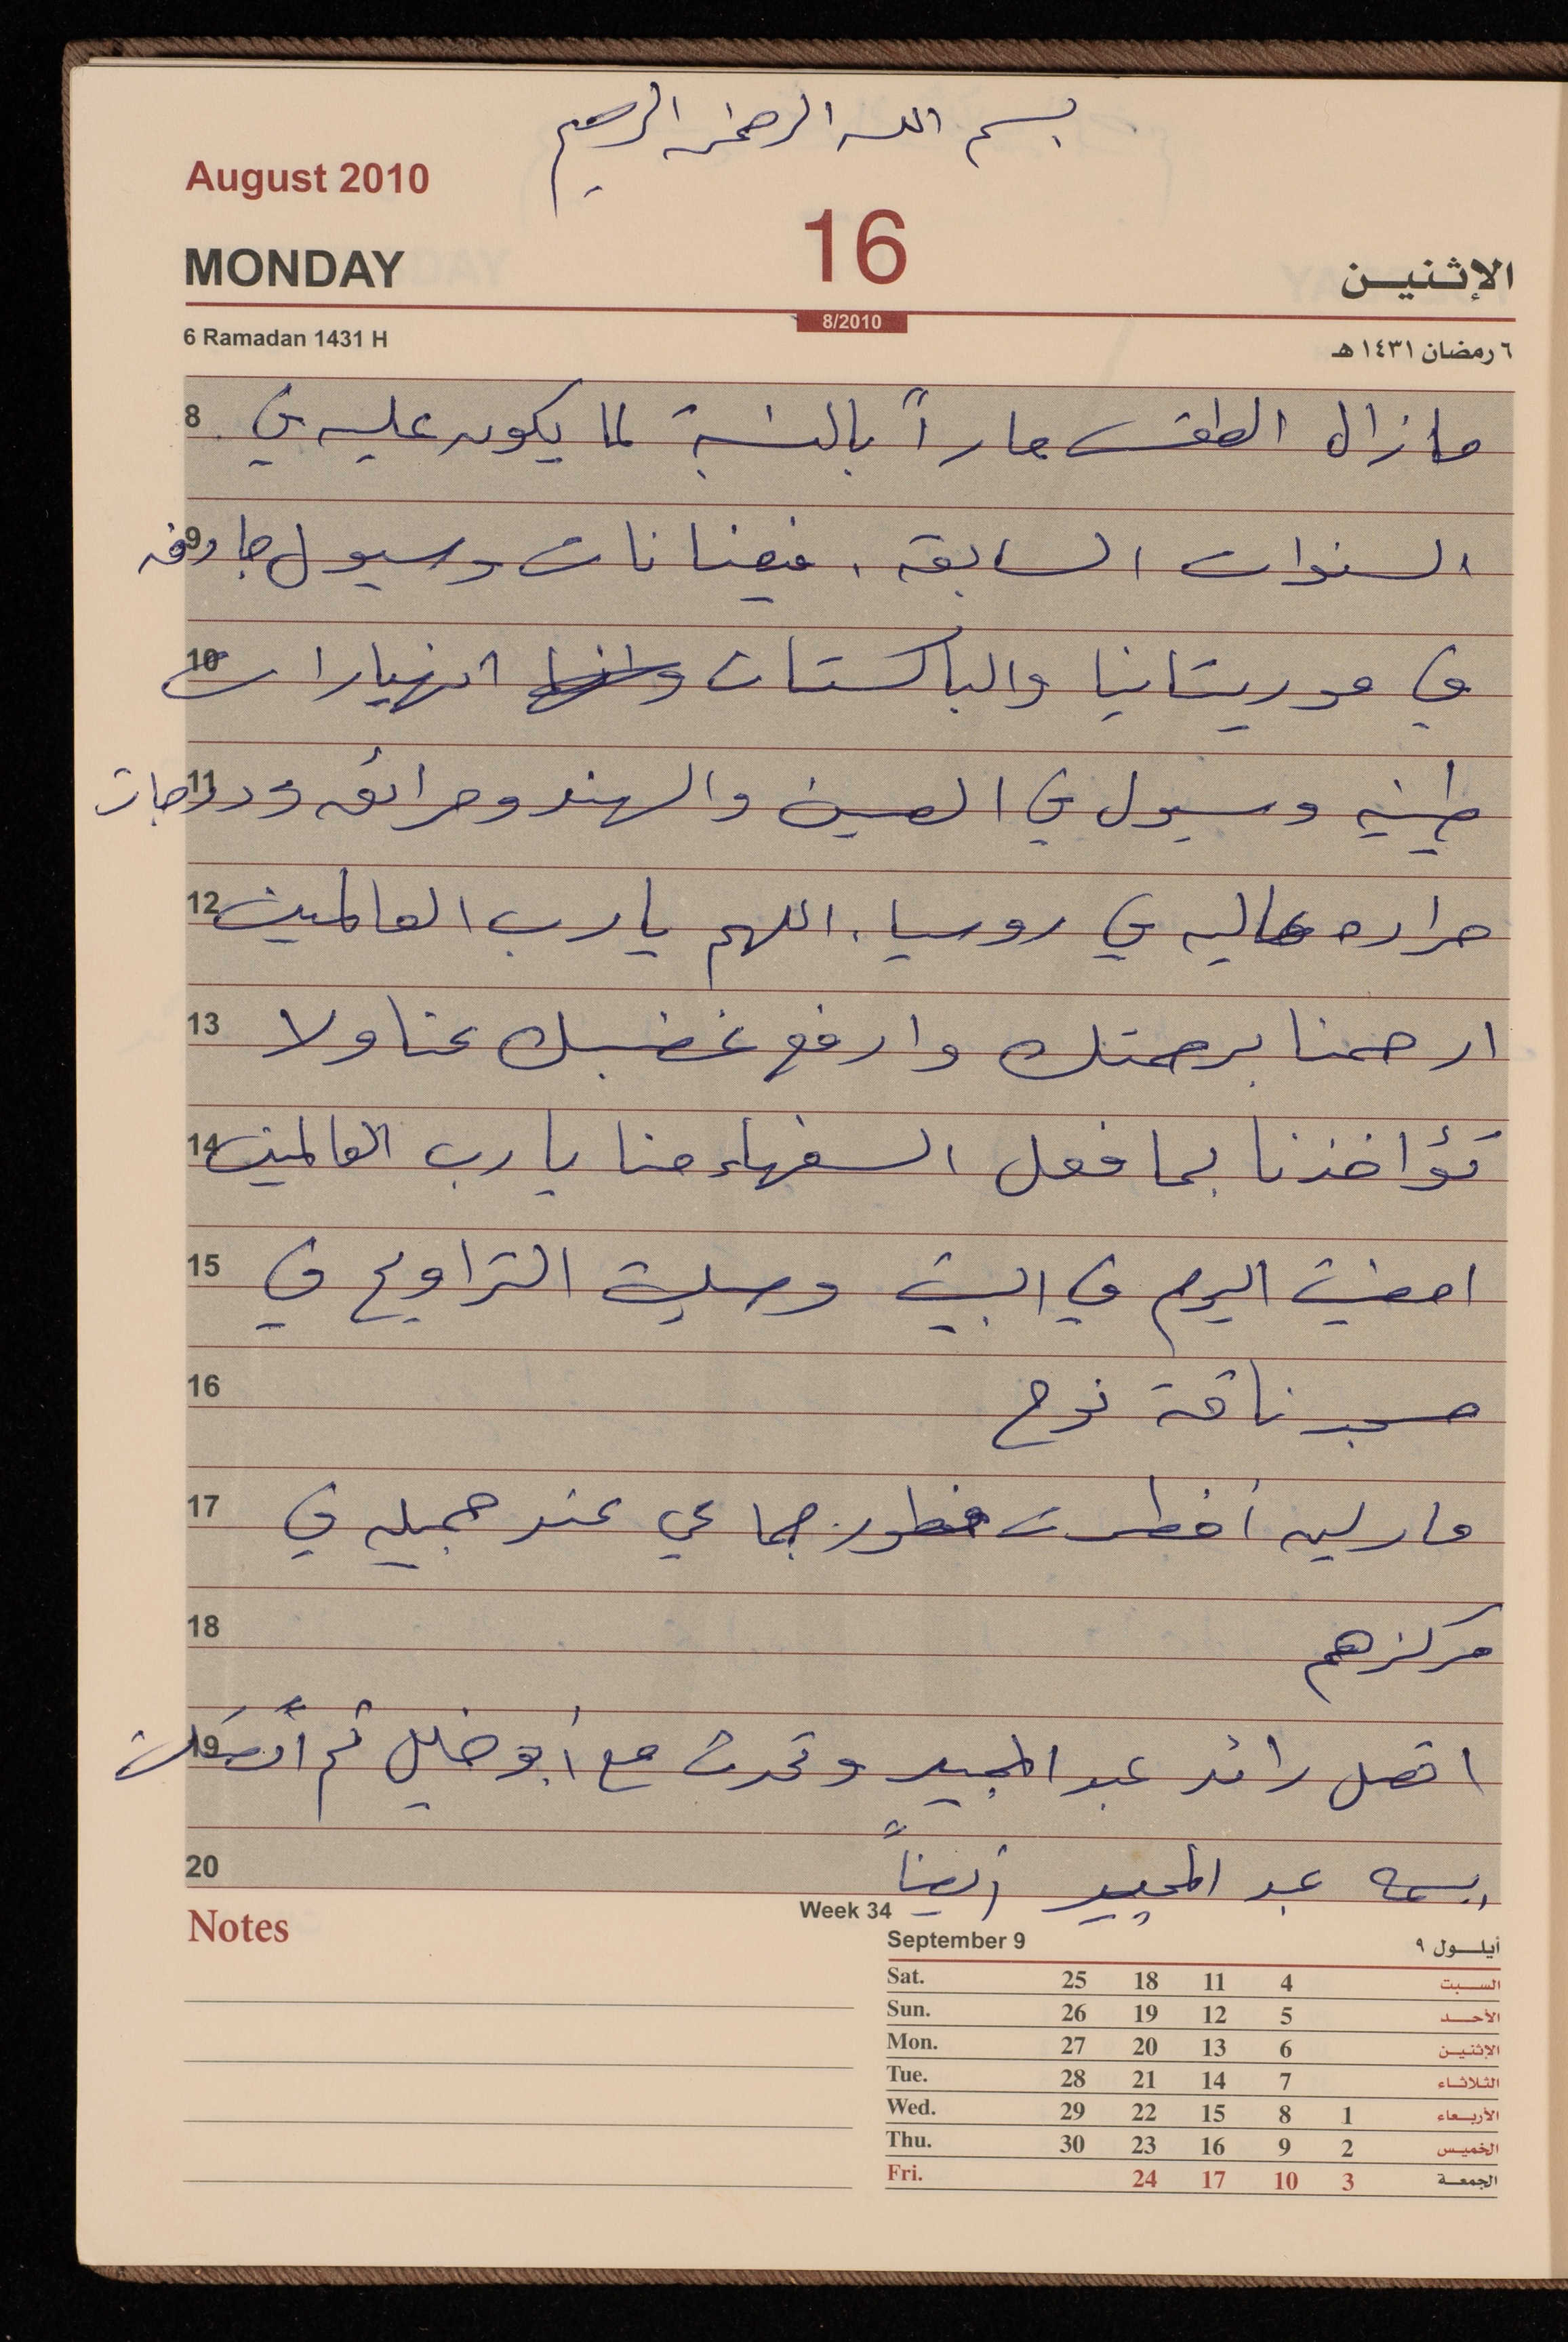 بسم الله الرحمن الرحيم
August 2010
16
MONDAY
الإثنين
8/2010
6 Ramadan 1431 H
٦ رمضان ١٤٣١ هـ
8 مازال الطقس حاراً بالنسبة لما يكون عليه في
9 السنوات السابقه. فيضانات وسيول جارفه
10 في موريتانيا والباكستان انهيارات
11 طينيه وسيول في الصين والهند وحرائق ودرجات
12 حراره عاليه في روسيا. اللهم يارب العالمين
13 ارحمنا برحمتك وارفع غضبك عنا ولا
14 تؤاخذنا بما فعل السفهاء منا يارب العالمين
15 امضيت اليوم في البيت وصليت التراويح في
16 مسجد ناقة نوح
17 مارليه أفطرت فطور جماعي عند جميله في
18 مركزهم
19 اتصل رائد عبد المجيد وتحدث مع أبو خليل ثم اتصلت
20 بسمه عبد المجيد أيضاً
Notes
Week 34
September 9
أيلول ٩
Sat. 25 18 11 4 السبت
Sun. 26 19 12 5 الأحد
Mon. 27 20 13 6 الإثنين
Tue. 28 21 14 7 الثلاثاء
Wed. 29 22 15 8 1 الأربعاء
Thu. 30 23 16 9 2 الخميس
Fri. 24 17 10 3 الجمعة